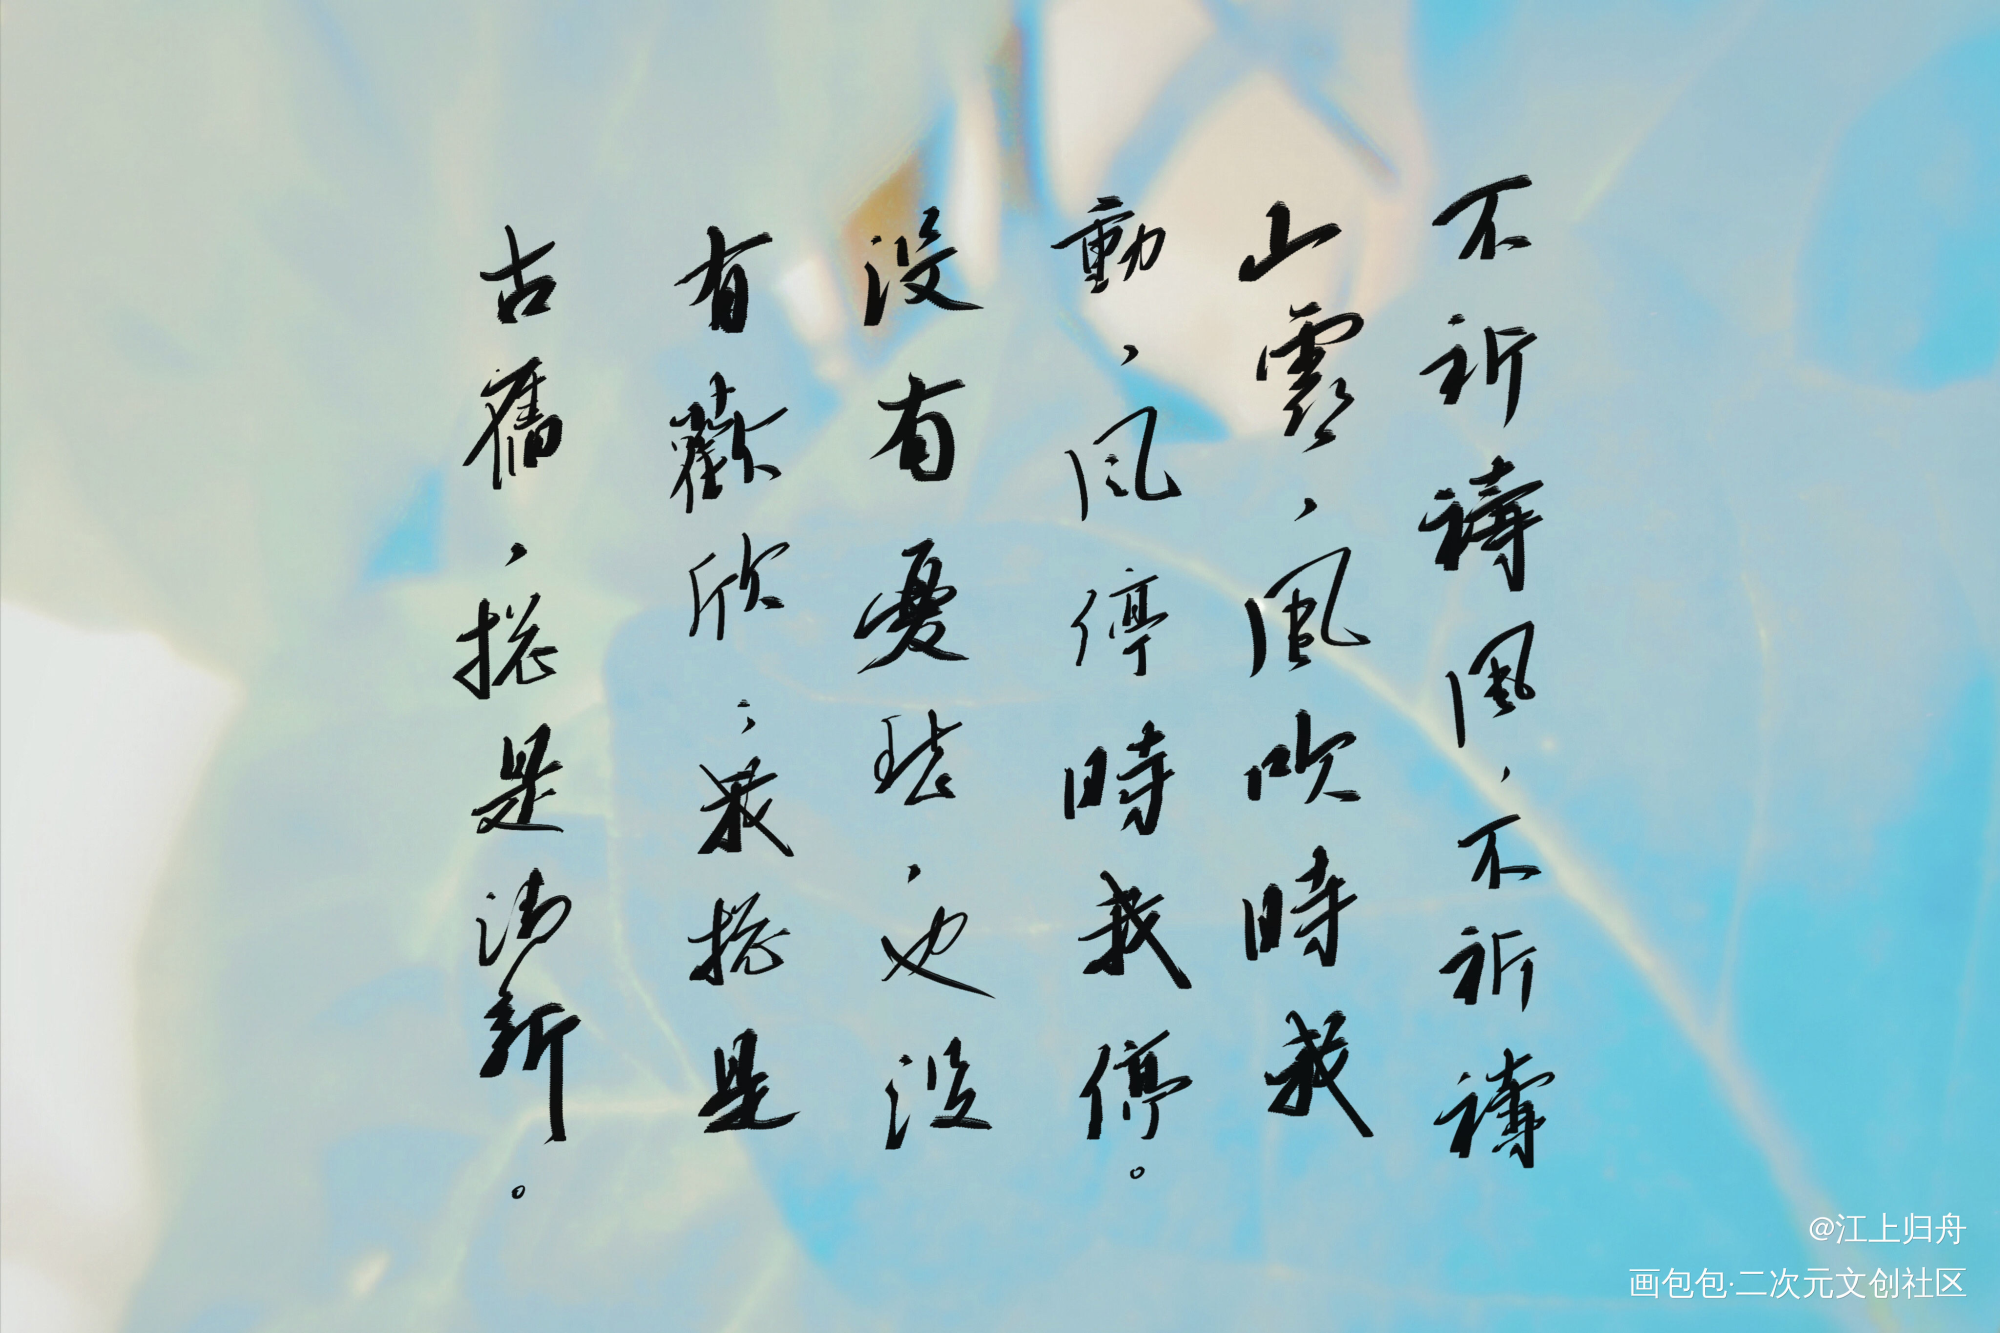 不祈禱風，不祈禱
山雾，風吹時我
動，风停時我停。
没有憂愁，也没
有歡欣；我總是
古舊，總是清新。
@江上归舟
画包包·二次元文创社区